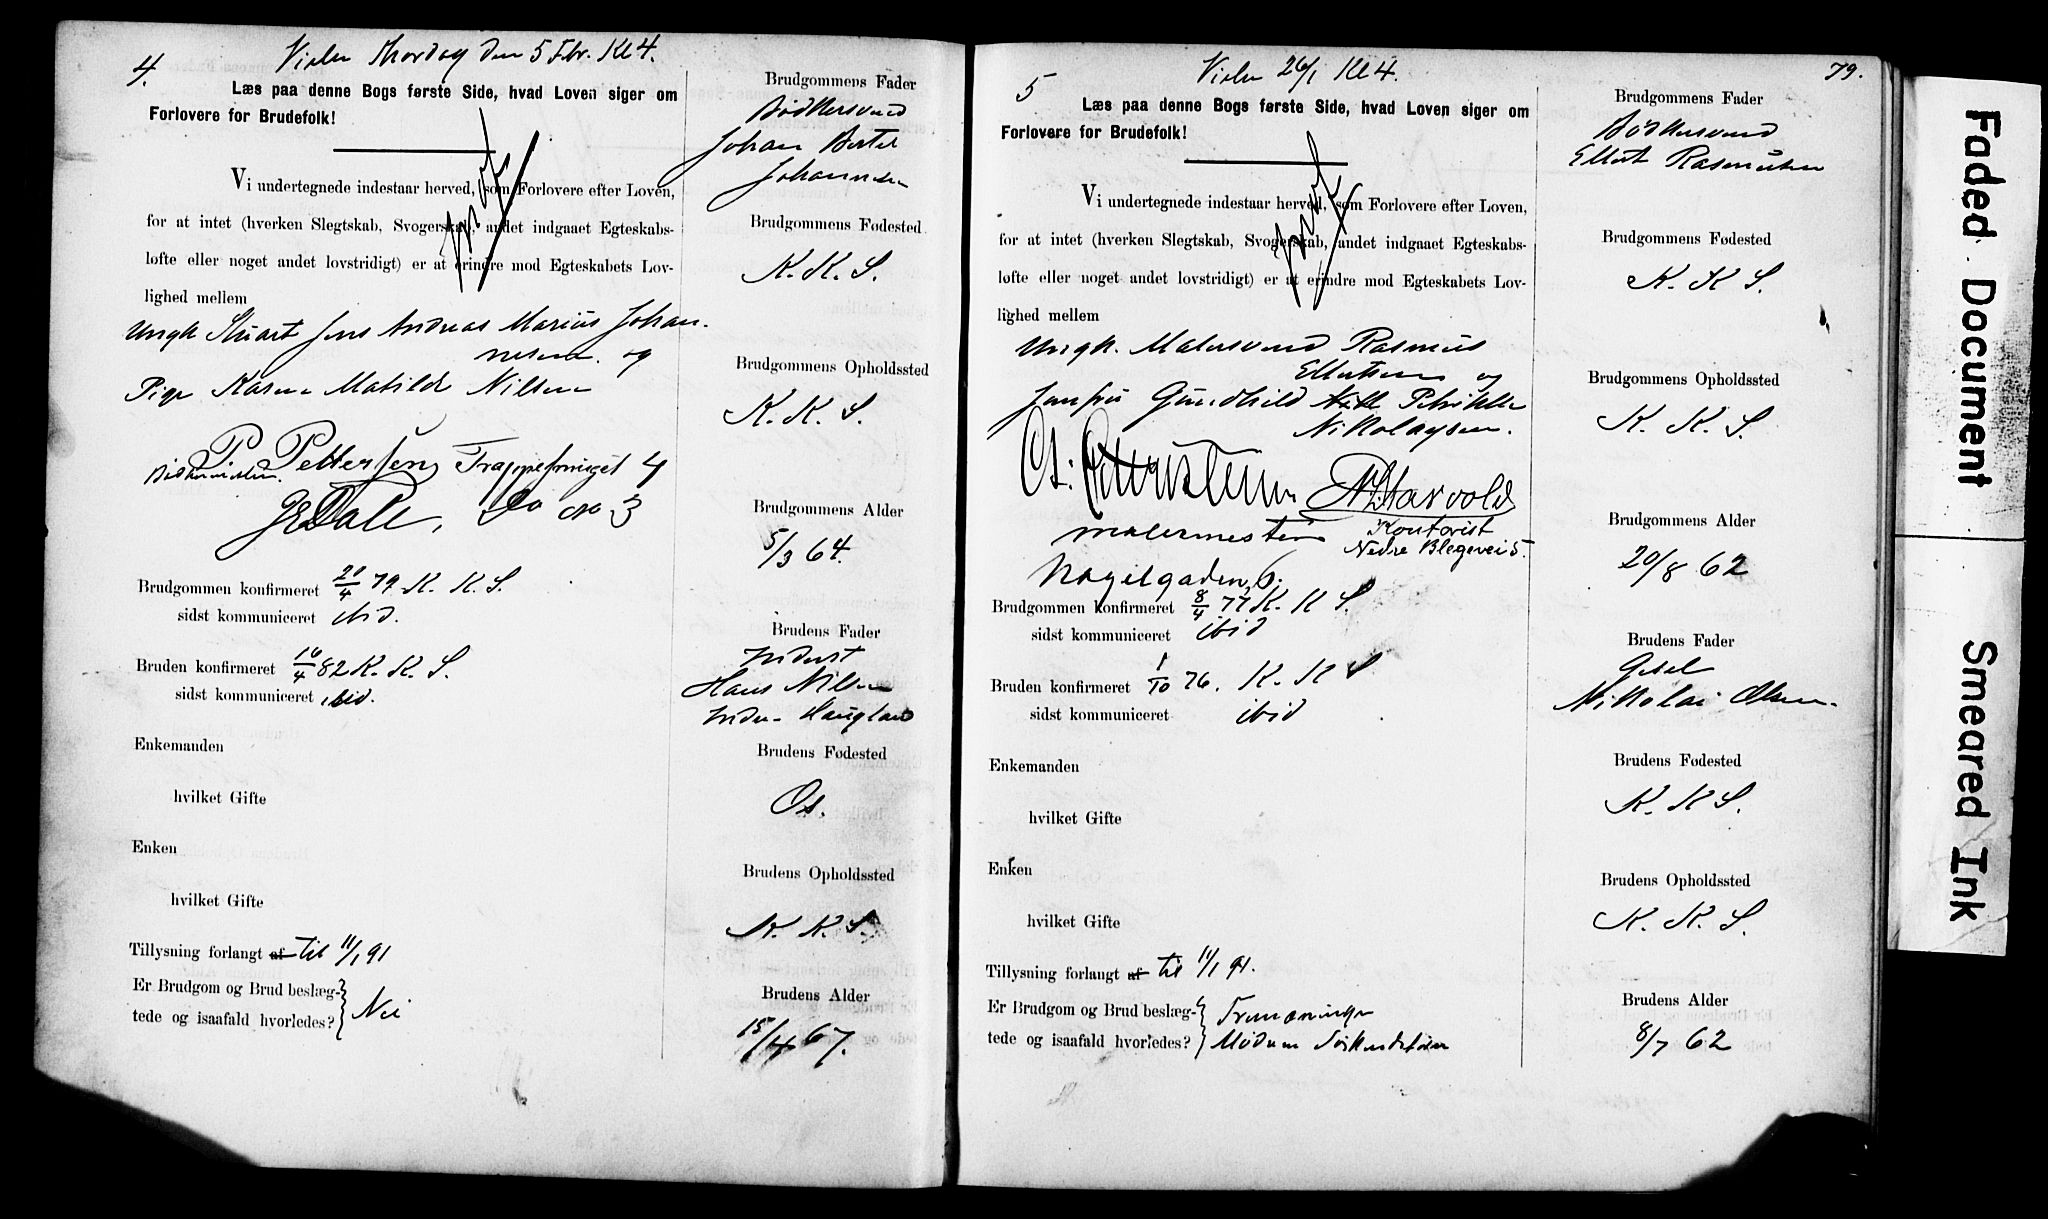 4.
Vielse Thorsdag den 5 Febr. Kl 4.
Læs paa denne Bogs første Side, hvad Loven siger om
Forlovere for Brudefolk!
Vi undertegnede indestaar herved, som Forlovere efter Loven,
for at intet (hverken Slegtskab, Svogerskab, andet indgaaet Egteskabs-
løfte eller noget andet lovstridigt) er at erindre mod Egteskabets Lov-
lighed mellem
Ungk. Stuart Jens Andreas Marius Johan-
nesen og
Pige Karen Matilde Nilsen
P. Pettersen, Trappesmuget 4
J E Dale, Do No 3
Brudgommen konfirmeret 20/4 79 K. K. S.
sidst kommuniceret ibid.
Bruden konfirmeret 16/4 82 K. K. S.
sidst kommuniceret ibid.
Enkemanden
hvilket Gifte
Enken
hvilket Gifte
Tillysning forlangt af til 11/1 91
Er Brudgom og Brud beslæg-
tede og isaafald hvorledes? Nei
Brudgommens Fader
Bødkersvend
Johan Bertel
Johannesen
Brudgommens Fødested
K. K. S.
Brudgommens Opholdssted
K. K. S.
Brudgommens Alder
5/3 64.
Brudens Fader
Inderst
Hans Nilsen
Haugland
Brudens Fødested
Os.
Brudens Opholdssted
K. K. S.
Brudens Alder
15/4 67.
5
Vielse 26/1 Kl 4.
79.
Læs paa denne Bogs første Side, hvad Loven siger om
Forlovere for Brudefolk!
Vi undertegnede indestaar herved, som Forlovere efter Loven,
for at intet (hverken Slegtskab, Svogerskab, andet indgaaet Egteskabs-
løfte eller noget andet lovstridigt) er at erindre mod Egteskabets Lov-
lighed mellem
Ungk. Malersvend Rasmus
Ellertsen og
Jomfru Gundhild Petrikke
Nikolaysen.
malermester Kontorist
Nedre Blegevei 5.
Nøgelgaden 6.
Brudgommen konfirmeret 8/4 77 K. K. S.
sidst kommuniceret ibid
Bruden konfirmeret 1/10 76. K. K S
sidst kommuniceret ibid
Enkemanden
hvilket Gifte
Enken
hvilket Gifte
Tillysning forlangt af til 11/1 91.
Er Brudgom og Brud beslæg-
tede og isaafald hvorledes? Tremæninger
Mødrene Søskendebørn
Brudgommens Fader
Bødkersvend
Ellert Rasmussen
Brudgommens Fødested
K. K S.
Brudgommens Opholdssted
K. K. S.
Brudgommens Alder
20/8 62
Brudens Fader
Gesel
Nikolai Olsen.
Brudens Fødested
K. K S.
Brudens Opholdssted
K. K. S.
Brudens Alder
8/7 62
Faded Document
Smeared Ink